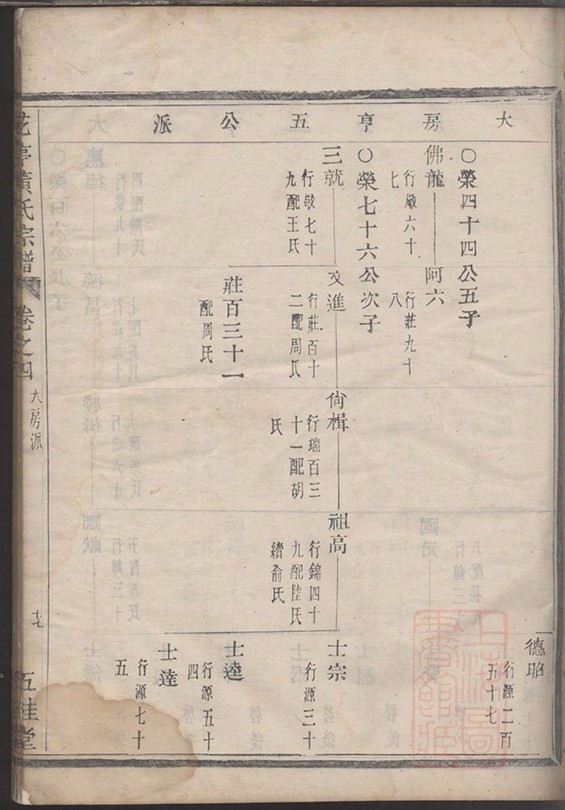 大房亨五公派
德昭
行源二百五十七
○榮四十四公五子
佛龍
行敬六十七
阿六
行莊九十八
○榮七十六公次子
三就
行敬七十九配王氏
文進
行莊百十二配周氏
尙楫
行瑞百三十一配胡氏
祖高
行錦四十九配陸氏續俞氏
士宗
行源三十
莊百三十一
配周氏
士達
行源五十四
士達
行源七十五
黃氏宗譜
卷之四
大房派
五桂堂